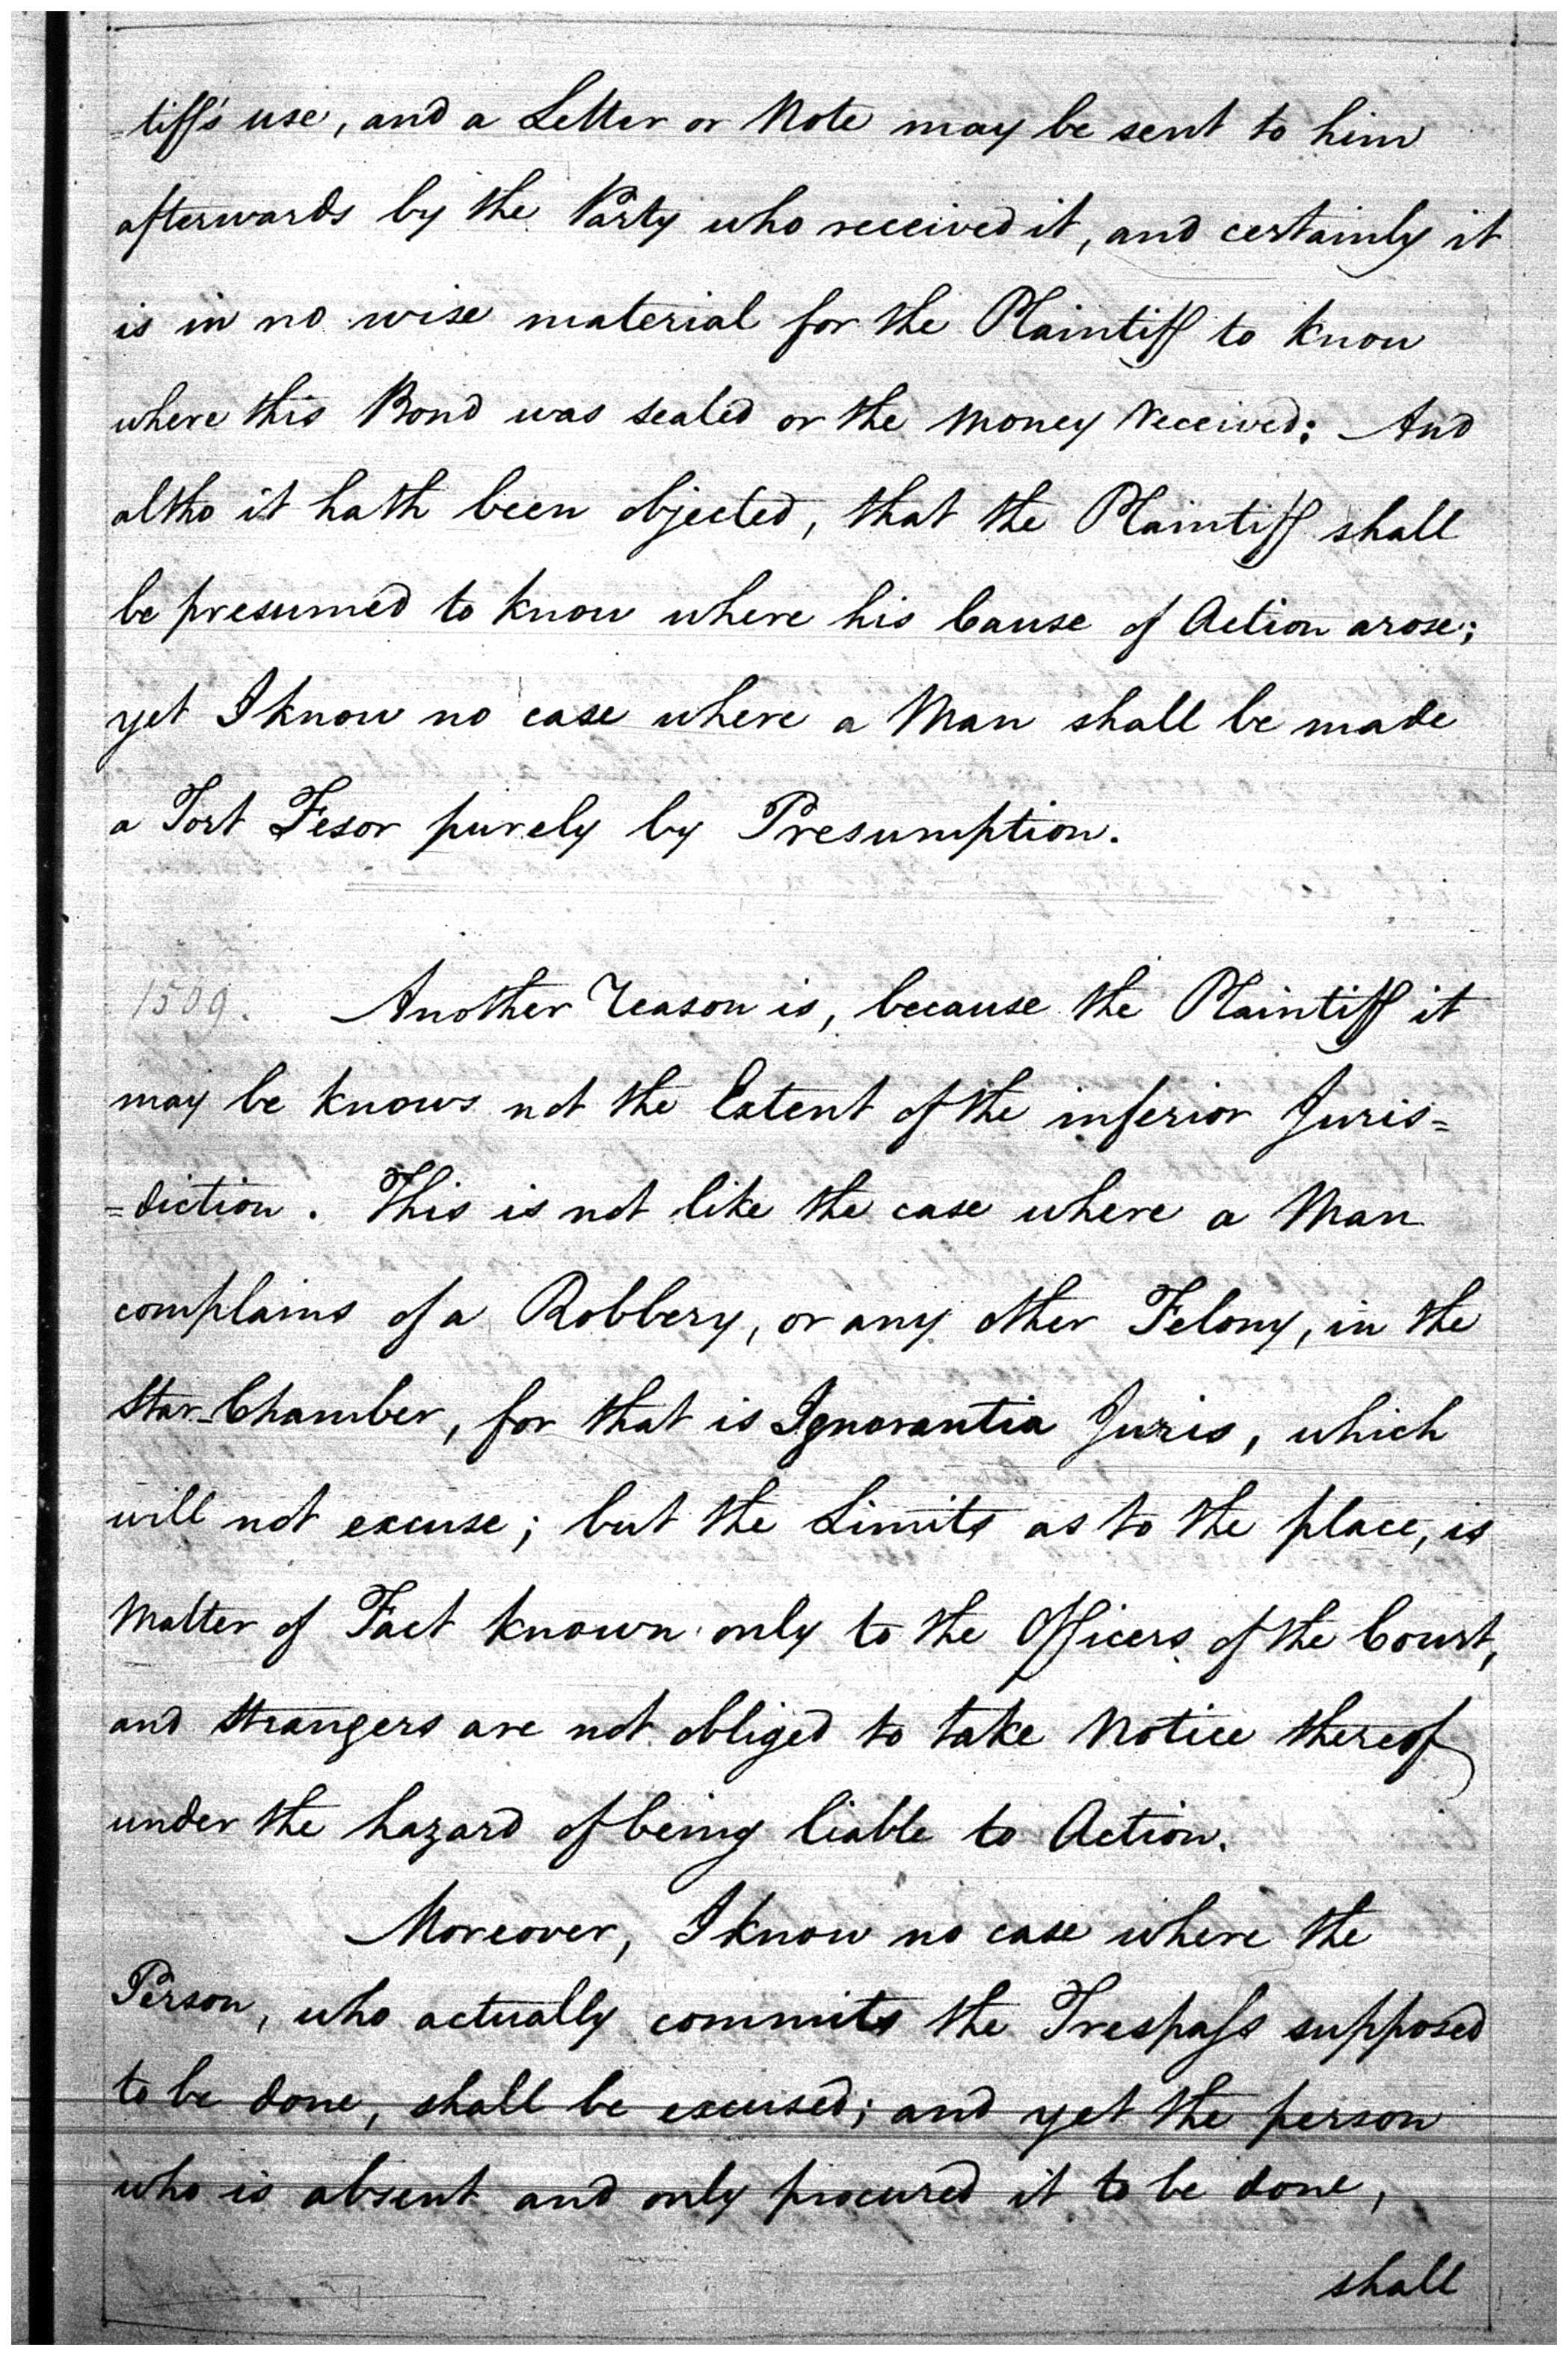 =tiff's use, and a Letter or Note may be sent to him
afterwards by the Party who received it, and certainly it
is in no wise material for the Plaintiff to know
where this Bond was sealed or the Money received: And
altho it hath been objected, that the Plaintiff shall
be presumed to know where his Cause of Action arose;
yet I know no case where a Man shall be made
a Tort Fesor purely by Presumption.
1509. Another reason is, because the Plaintiff it
may be knows not the Extent of the inferior Juris=
=diction. This is not like the case where a Man
complains of a Robbery, or any other Felony, in the
Star-Chamber, for that is Ignorantia Juris, which
will not excuse; but the Limits as to the place, is
Matter of Fact known only to the Officers of the Court,
and Strangers are not obliged to take Notice thereof
under the hazard of being liable to Action.
Moreover, I know no case where the
Person, who actually commits the Trespaſs supposed
to be done, shall be excused; and yet the person
who is absent and only procured it to be done,
shall